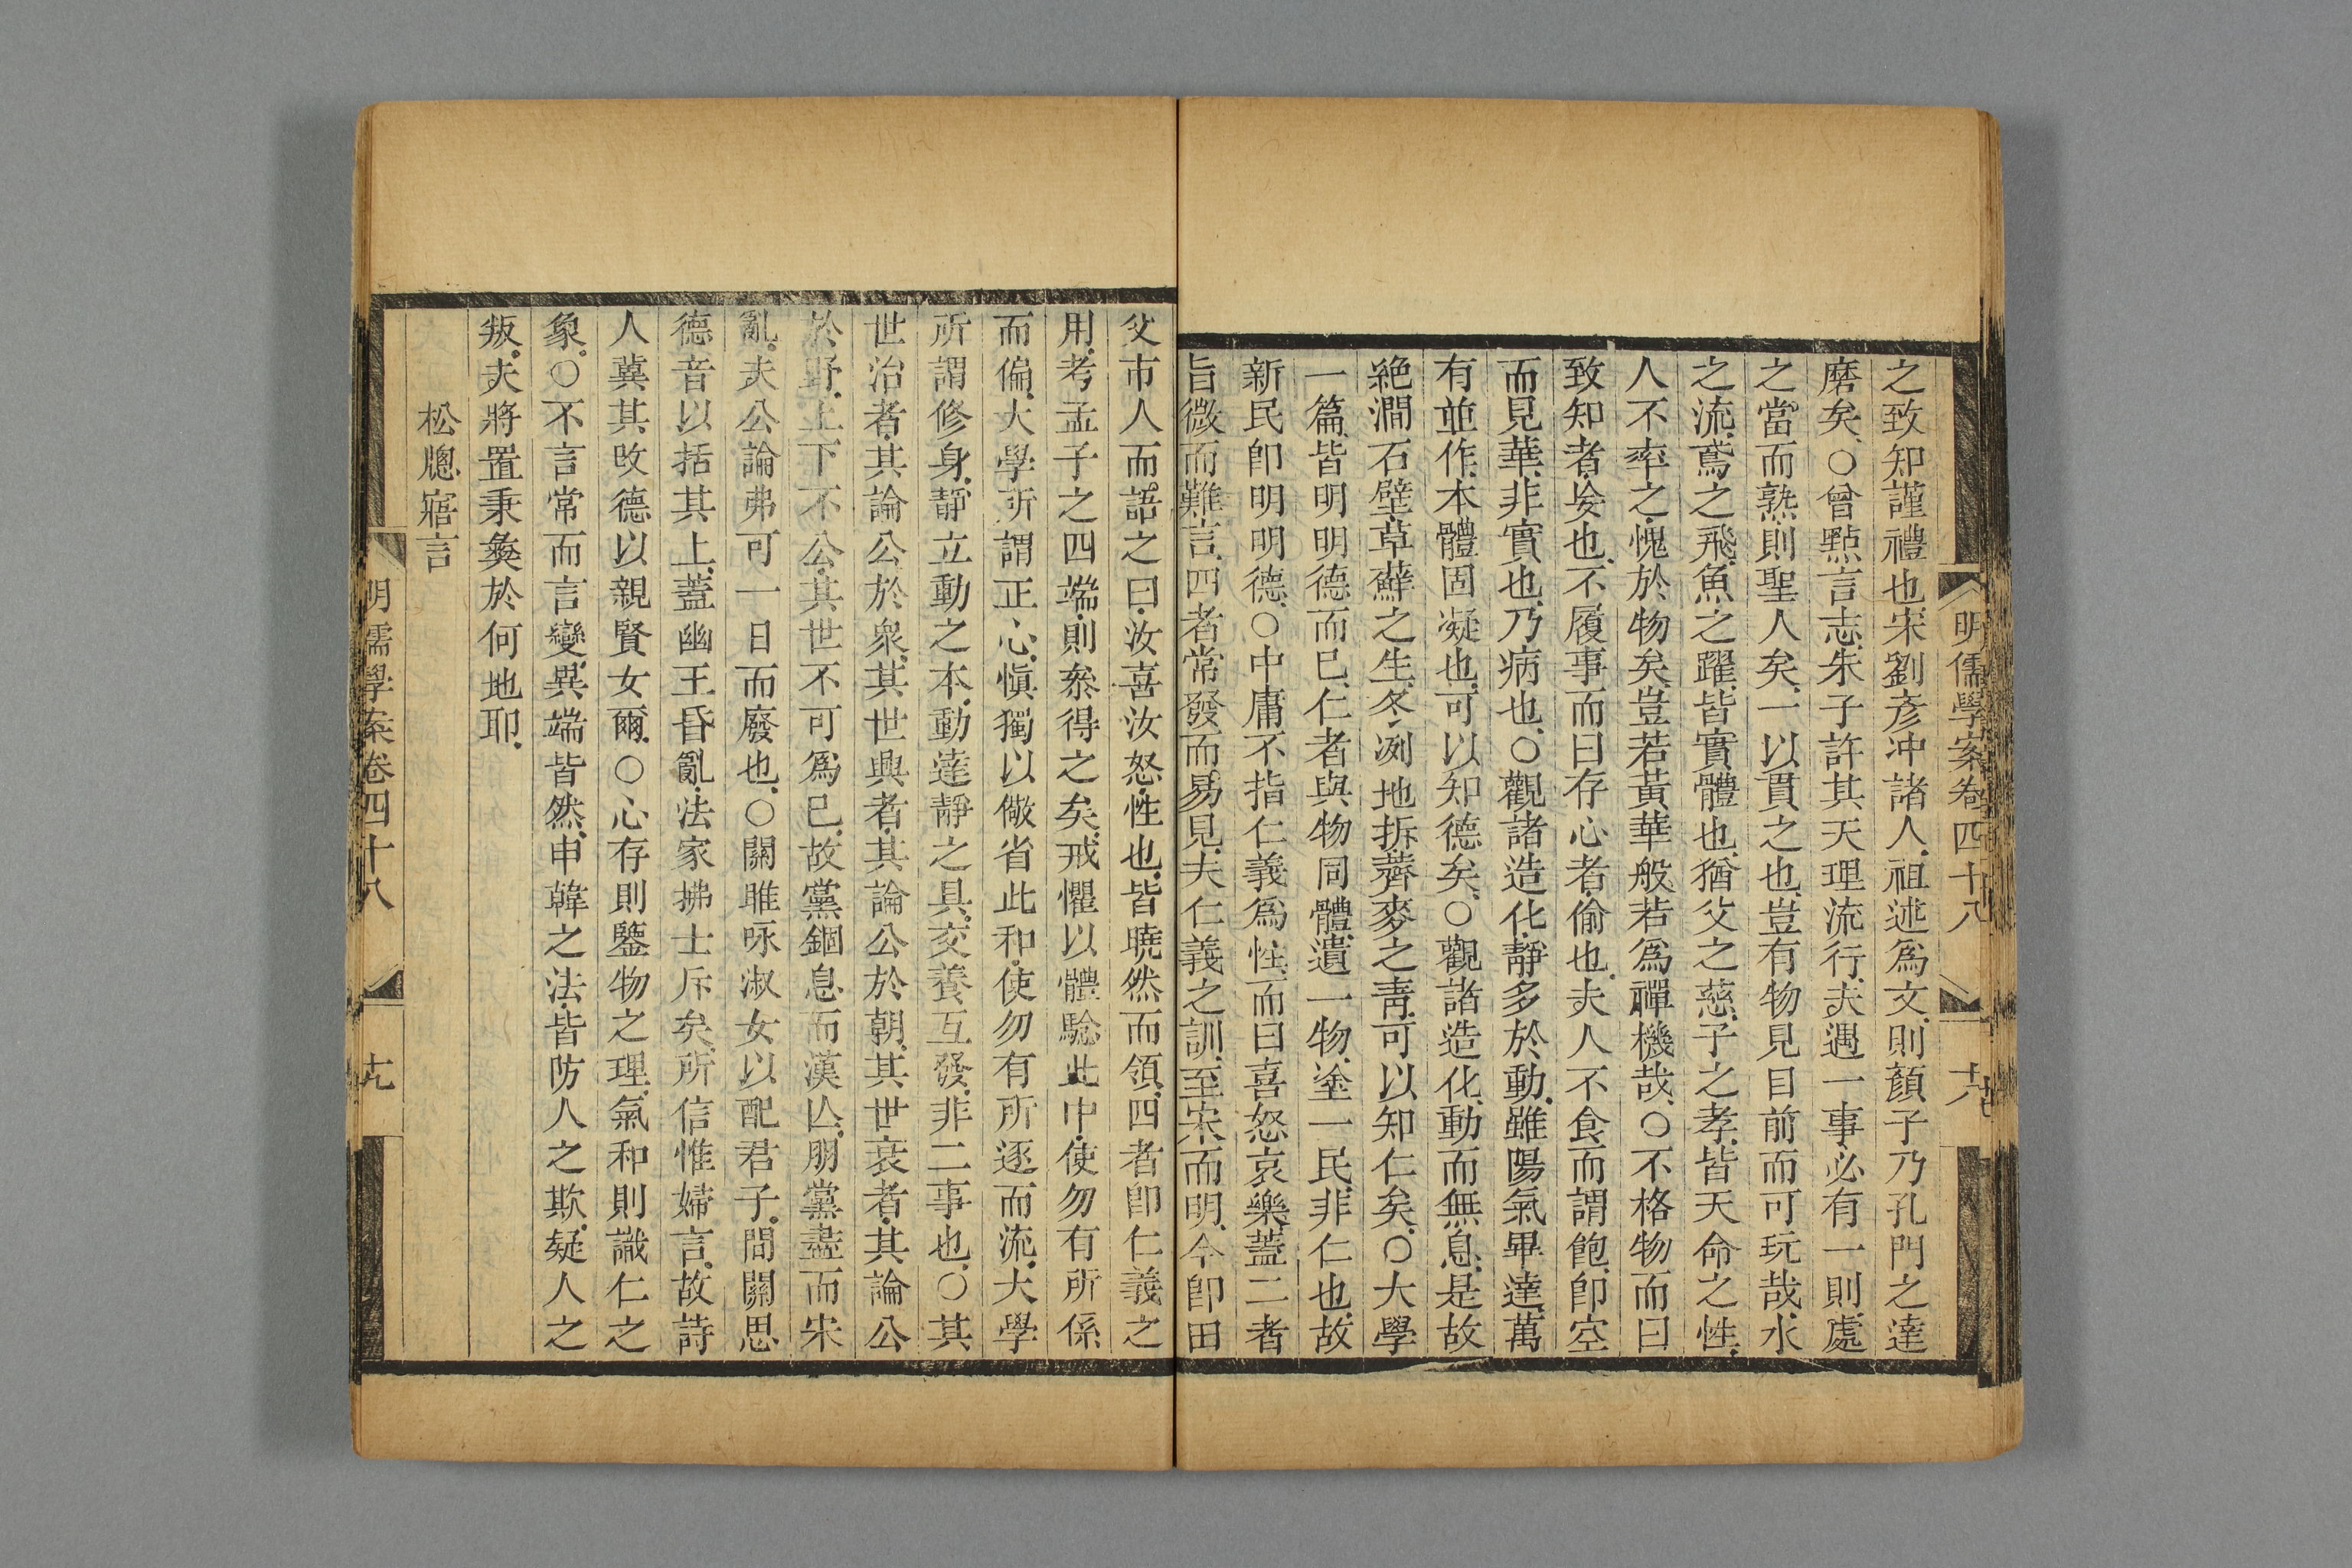 明儒學案卷四十八
十八
之致知謹禮也宋劉彥冲諸人祖述爲文則顏子乃孔門之達
磨矣○曾點言志朱子許其天理流行夫遇一事必有一則處
之當而熟則聖人矣一以貫之也豈有物見目前而可玩哉水
之流鳶之飛魚之躍皆實體也猶父之慈子之孝皆天命之性
人不率之愧於物矣豈若黃華般若爲禪機哉○不格物而曰
致知者妄也不履事而曰存心者偷也夫人不食而謂飽卽空
而見華非實也乃病也○觀諸造化靜多於動雖陽氣畢達萬
有並作本體固凝也可以知德矣○觀諸造化動而無息是故
絶澗石壁草蘚之生冬冽地拆薺麥之靑可以知仁矣○大學
一篇皆明明德而已仁者與物同體遺一物塗一民非仁也故
新民卽明明德○中庸不指仁義爲性而曰喜怒哀樂蓋二者
旨微而難言四者常發而易見夫仁義之訓至宋而明今卽田
父市人而語之曰汝喜汝怒性也皆曉然而領四者卽仁義之
用考孟子之四端則叅得之矣戒懼以體驗此中使勿有所係
而偏大學所謂正心愼獨以儆省此和使勿有所逐而流大學
所謂修身靜立動之本動達靜之具交養互發非二事也○其
世治者其論公於衆其世興者其論公於朝其世衰者其論公
於野上下不公其世不可爲已故黨錮息而漢亾朋黨盡而宋
亂夫公論弗可一日而廢也○關雎咏淑女以配君子間關思
德音以括其上蓋幽王昏亂法家拂士斥矣所信惟婦言故詩
人冀其改德以親賢女爾○心存則鑒物之理氣和則識仁之
象○不言常而言變異端皆然申韓之法皆防人之欺疑人之
叛夫將置秉彜於何地耶
松牕寤言
明儒學案卷四十八
十九